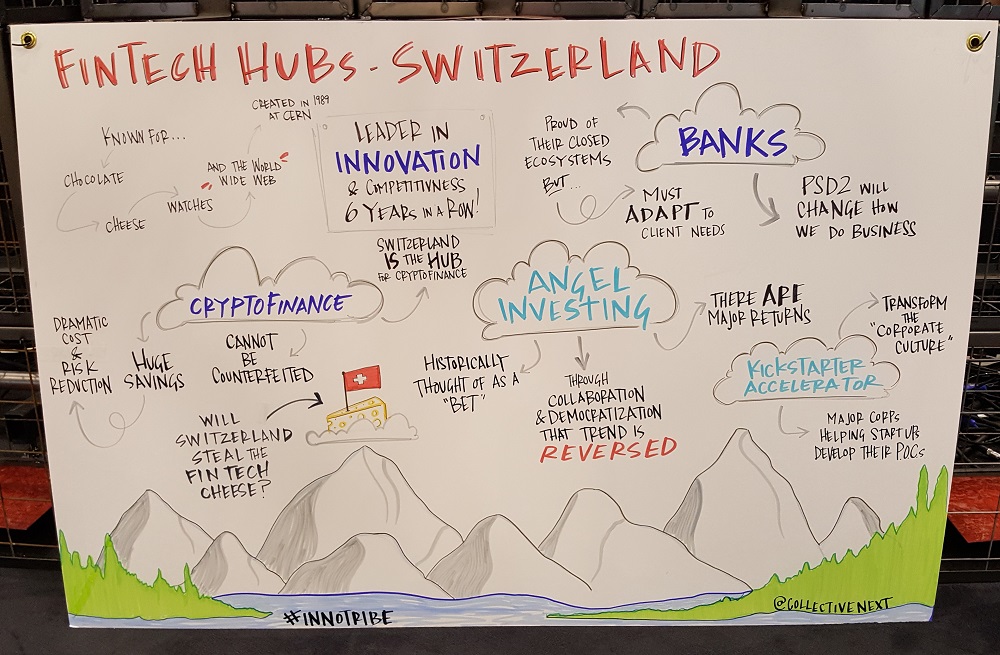 FINTECH HUBS - SWITZERLAND
KNOWN FOR...
CHOCOLATE
CHEESE
WATCHES
AND THE WORLD
WIDE WEB
CREATED IN 1989
AT CERN
LEADER IN
INNOVATION
& COMPETITIVNESS
6 YEARS IN A ROW!
PROUD OF
THEIR CLOSED
ECOSYSTEMS
BUT...
MUST
ADAPT TO
CLIENT NEEDS
BANKS
PSD2 WILL
CHANGE HOW
WE DO BUSINESS
CRYPTOFINANCE
SWITZERLAND
IS THE HUB
FOR CRYPTOFINANCE
DRAMATIC
COST
&
RISK
REDUCTION
HUGE
SAVINGS
CANNOT
BE
COUNTERFEITED
WILL
SWITZERLAND
STEAL THE
FINTECH
CHEESE?
ANGEL
INVESTING
HISTORICALLY
THOUGHT OF AS A
"BET"
THROUGH
COLLABORATION
& DEMOCRATIZATION
THAT TREND IS
REVERSED
THERE ARE
MAJOR RETURNS
KICKSTARTER
ACCELERATOR
TRANSFORM
THE
"CORPORATE
CULTURE"
MAJOR CORPS
HELPING STARTUPS
DEVELOP THEIR POCs
#INNOTRIBE
@COLLECTIVENEXT